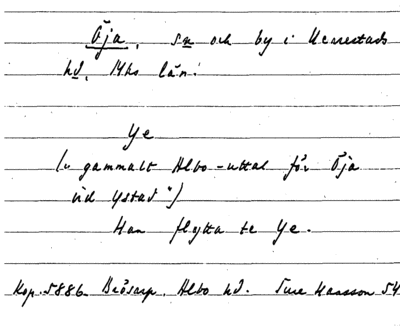 Öja, sn och by i Herrestads
hd, Mhs län.
Ye
(" gammalt Albo-uttal för Öja
vid Ystad")
Han flytta te Ye.
Kop. 5886. Brösarp, Albo hd. Ture Hansson 54